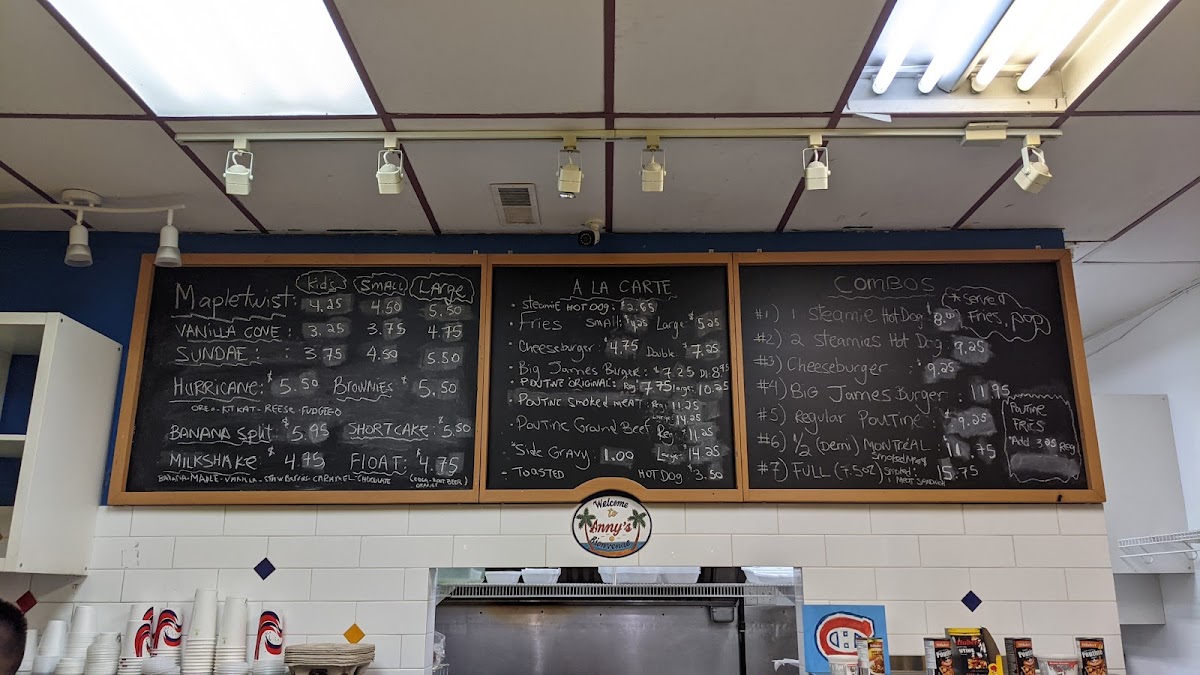 Kid's SMALL LARGE
Mapletwist: 4.25 4.50 5.50
VANILLA CONE: 3.25 3.75 4.75
SUNDAE: 3.75 4.50 5.50
HURRICANE: $5.50 BROWNIES $5.50
OREO-KITKAT-REESE-FUDGEEO
BANANA Split $5.95 SHORTCAKE: $5.50
MILKSHAKE $4.75 FLOAT: $4.75
BANANA-MAPLE-VANILLA-STRAWBERRIES-CARAMEL-CHOCOLATE (COCA-ROOT BEER/
ORANGE
A LA CARTE
• Steamie HOT DOG: $2.65
• Fries Small: Large: $5.25
• Cheeseburger: $4.75 Double: $7.25
• Big James Burger: $7.25 Dl: 8.95
• POUTINE ORIGINAL: Reg 7.75 large: 10.25
• Poutine Smoked Meat Reg: 11.25
Large: 14.25
• Poutine Ground Beef Reg: 11.25
Large: 14.25
• Side Gravy: 1.00
- TOASTED HOT DOG $3.50
COMBOS
*Served
Fries, pop)
#1) 1 steamie Hot Dog:
#2) 2 steamies Hot Dog: 9.25
#3) Cheeseburger : $9.25
#4) BIG JAMES Burger : 11.95
#5) Regular Poutine : $9.25
#6) 1/2 (Demi) MONTREAL : 11.75
Smoked Meat
#7) FULL (7.5oz) Smoked : 15.75
Meat Sandwich
Poutine
FRIES
"Add 3.25 Reg
Welcome
to
Anny's
Bienvenue